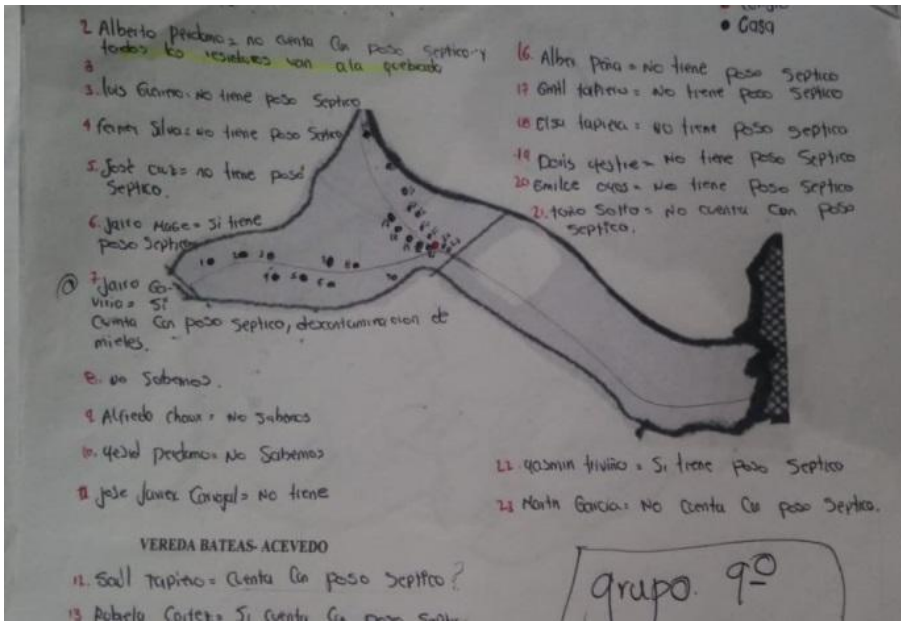 • Casa
2 Alberto perdomo = no cuenta Con poso septico y
todos los residuos van ala quebrada
3
3. luis Guerrero = No tiene poso Septico
4 ferner Silva = no tiene poso Septico
5. José cruz = no tiene poso
Septico.
6. Jairo Mace = Si tiene
poso Septico
7 Jairo Ga-
virio = Si
Cuenta Con poso septico, descontaminacion de
mieles.
8. no Sabemos.
9 Alfredo chaux = No Sabemos
10. yesid perdomo = No Sabemos
11 jose Javier Carvajal = No tiene
VEREDA BATEAS- ACEVEDO
12. Saúl Tapiero = Cuenta Con poso Septico?
13 Cortez = Si cuenta Con poso
16. Alber Peña = No tiene poso Septico
17 tapiero = No tiene poso Septico
18 Elsa tapiera = no tiene poso septico
19 Doris = No tiene Poso Septico
20 Emilce = No tiene Poso Septico
21. = No cuenta Con poso
Septico.
22. yasmin triviño = Si tiene poso Septico
23 Martin Garcia = No Cuenta Con poso Septico.
grupo. 9º